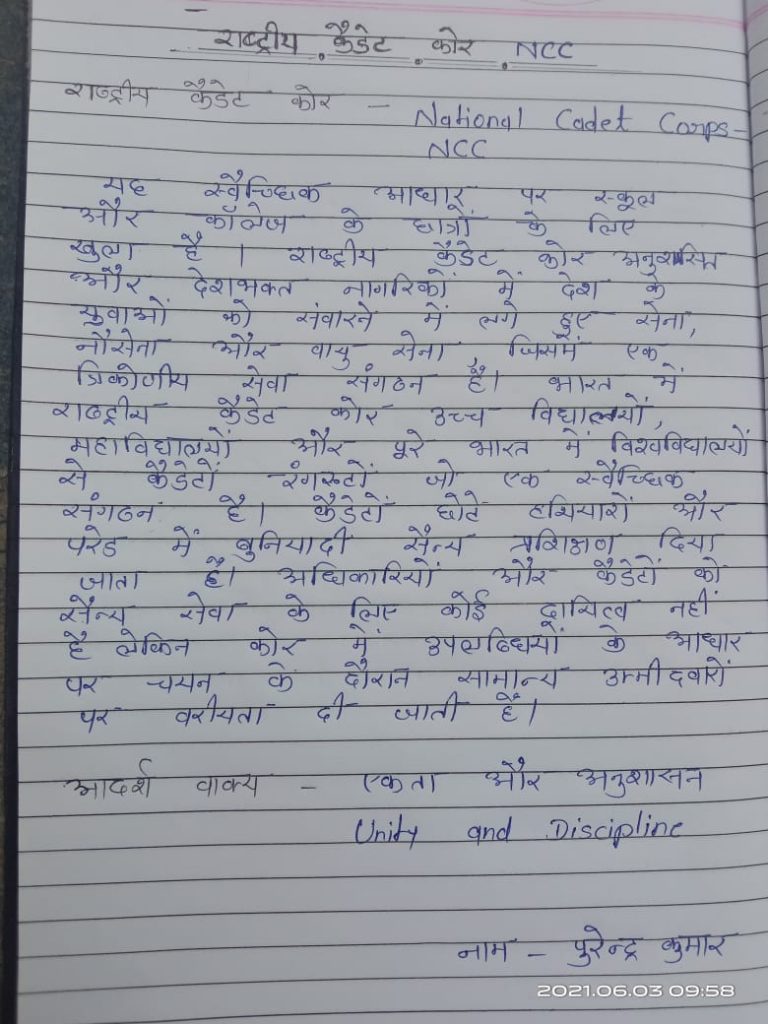 राष्ट्रीय कैडेट कोर NCC
राष्ट्रीय कैडेट कोर - National Cadet Corps-
NCC
यह स्वैच्छिक आधार पर स्कूल
और कॉलेज के छात्रों के लिए
खुला है । राष्ट्रीय कैडेट कोर अनुशासित
और देशभक्त नागरिकों में देश के
युवाओं को संवारने में लगे हुए सेना,
नौसेना और वायु सेना जिसमें एक
त्रिकोणीय सेवा संगठन है। भारत में
राष्ट्रीय कैडेट कोर उच्च विद्यालयों,
महाविद्यालयों और पूरे भारत में विश्वविद्यालयों
से कैडेटों रंगरूटों जो एक स्वैच्छिक
संगठन है। कैडेटों छोटे हथियारों और
परेड में बुनियादी सैन्य प्रशिक्षण दिया
जाता है। अधिकारियों और कैडेटों को
सैन्य सेवा के लिए कोई दायित्व नहीं
है लेकिन कोर में उपलब्धियों के आधार
पर चयन के दौरान सामान्य उम्मीदवारों
पर वरीयता दी जाती है।
आदर्श वाक्य - एकता और अनुशासन
Unity and Discipline
नाम - पुरेन्द्र कुमार
2021.06.03 09:58